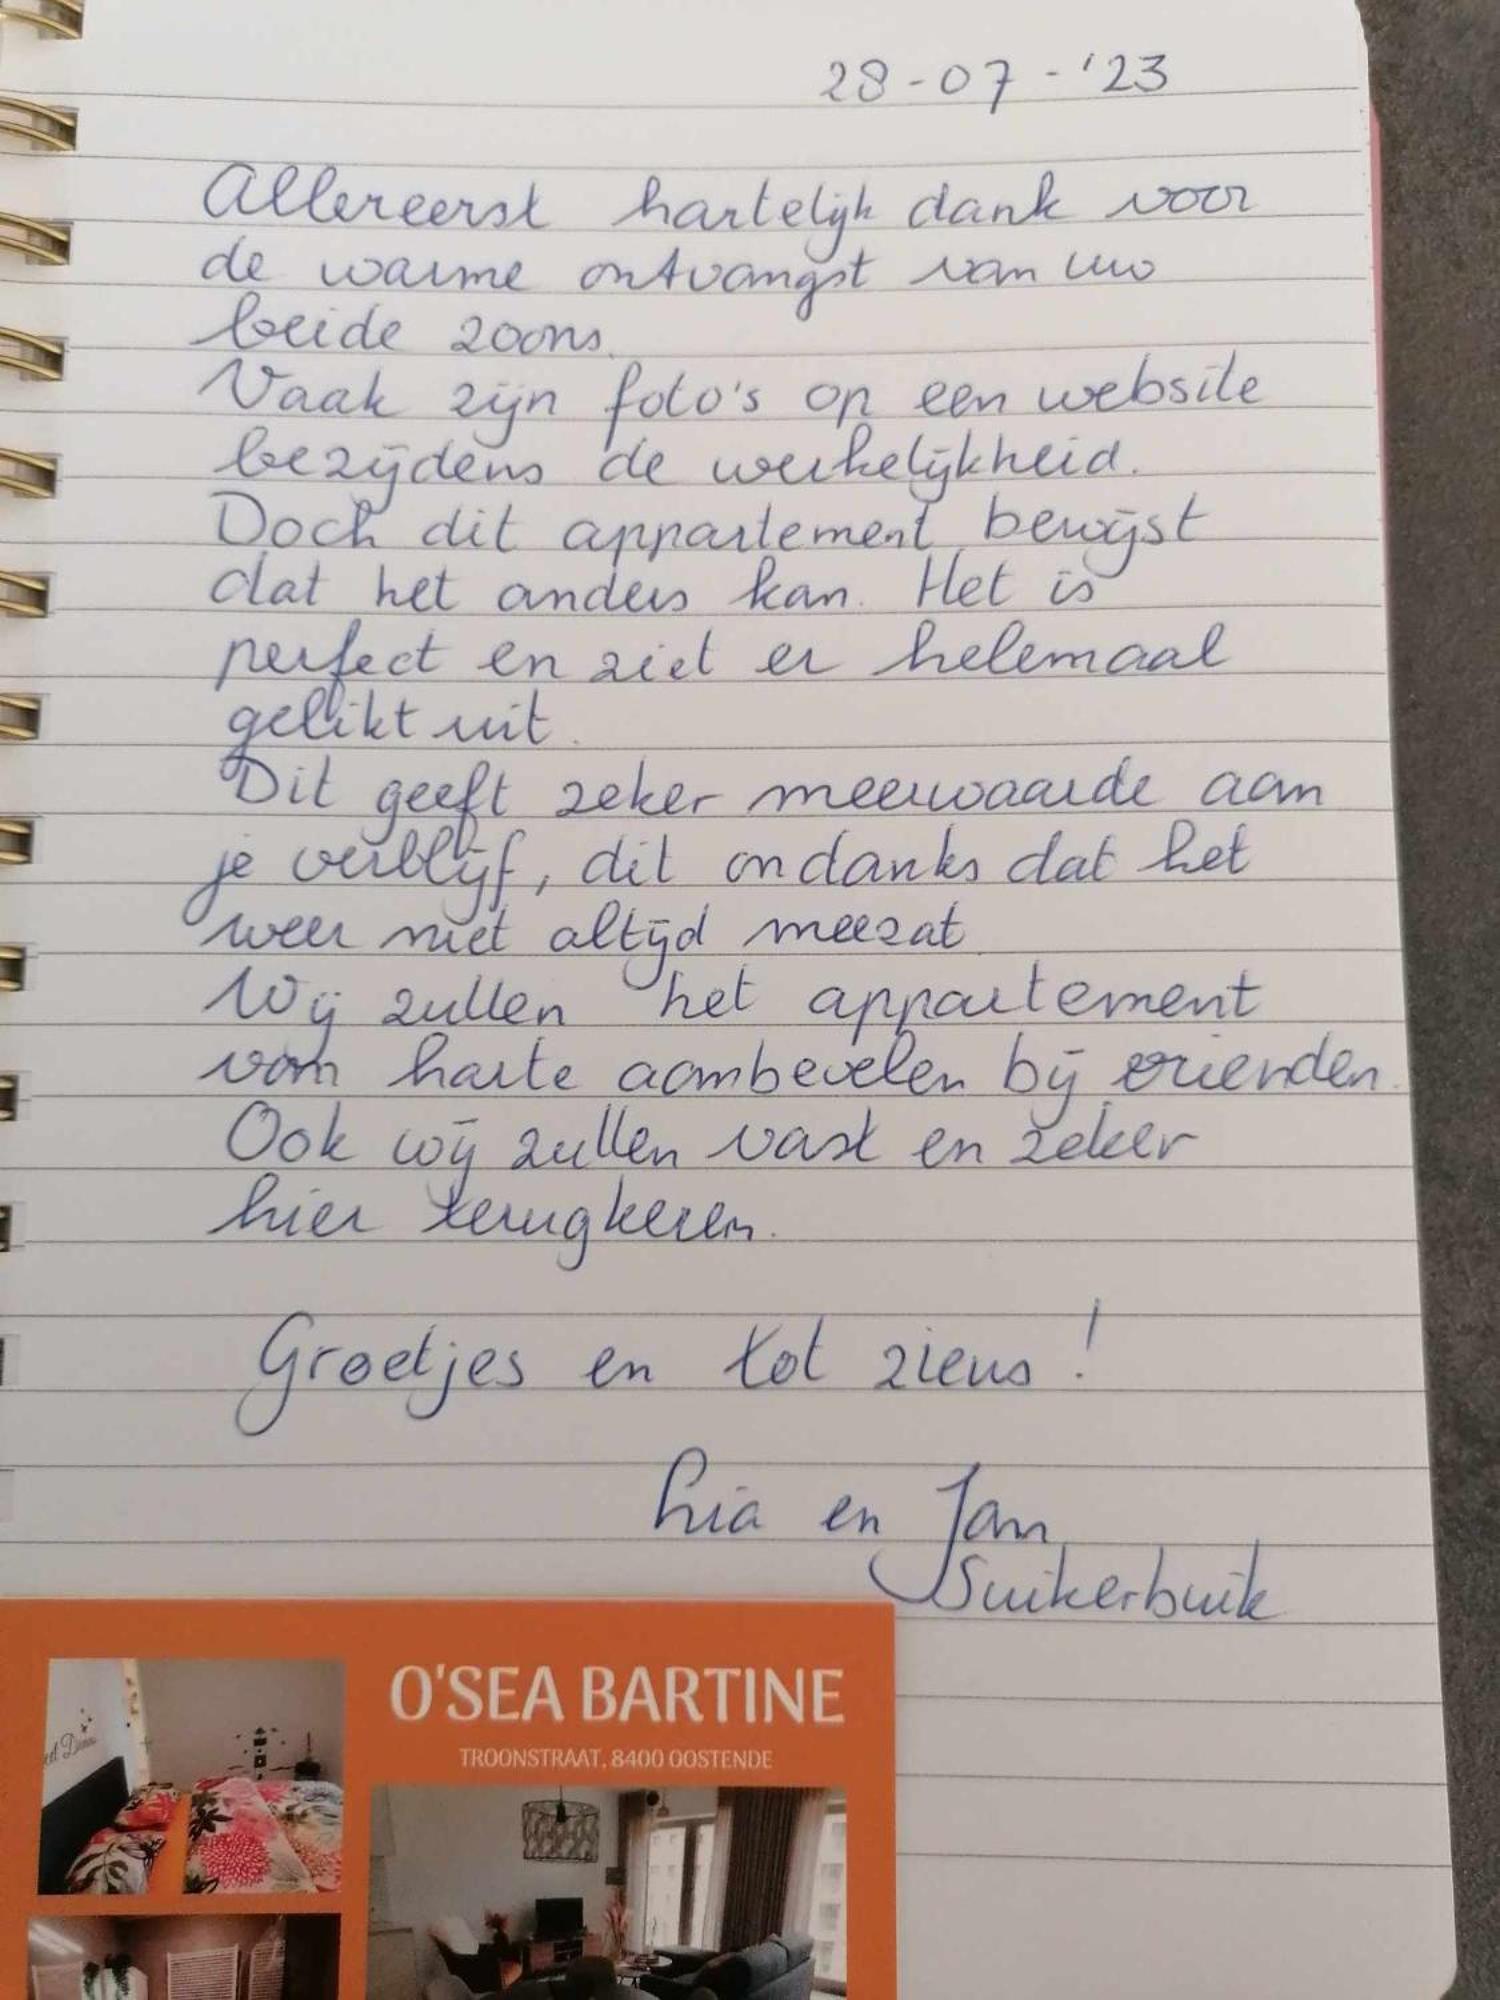 28-07-'23
Allereerst hartelijk dank voor
de warme ontvangst van uw
beide zoons.
Vaak zijn foto's op een website
bezijdens de werkelijkheid.
Doch dit appartement bewijst
dat het anders kan. Het is
perfect en ziet er helemaal
gelikt uit.
Dit geeft zeker meerwaarde aan
je verblijf, dit ondanks dat het
weer niet altijd meezat
Wij zullen het appartement
van harte aanbevelen bij vrienden.
Ook wij zullen vast en zeker
hier terugkeren.
Groetjes en tot ziens!
Ria en Jan
Suikerbuik
O'SEA BARTINE
TROONSTRAAT, 8400 OOSTENDE